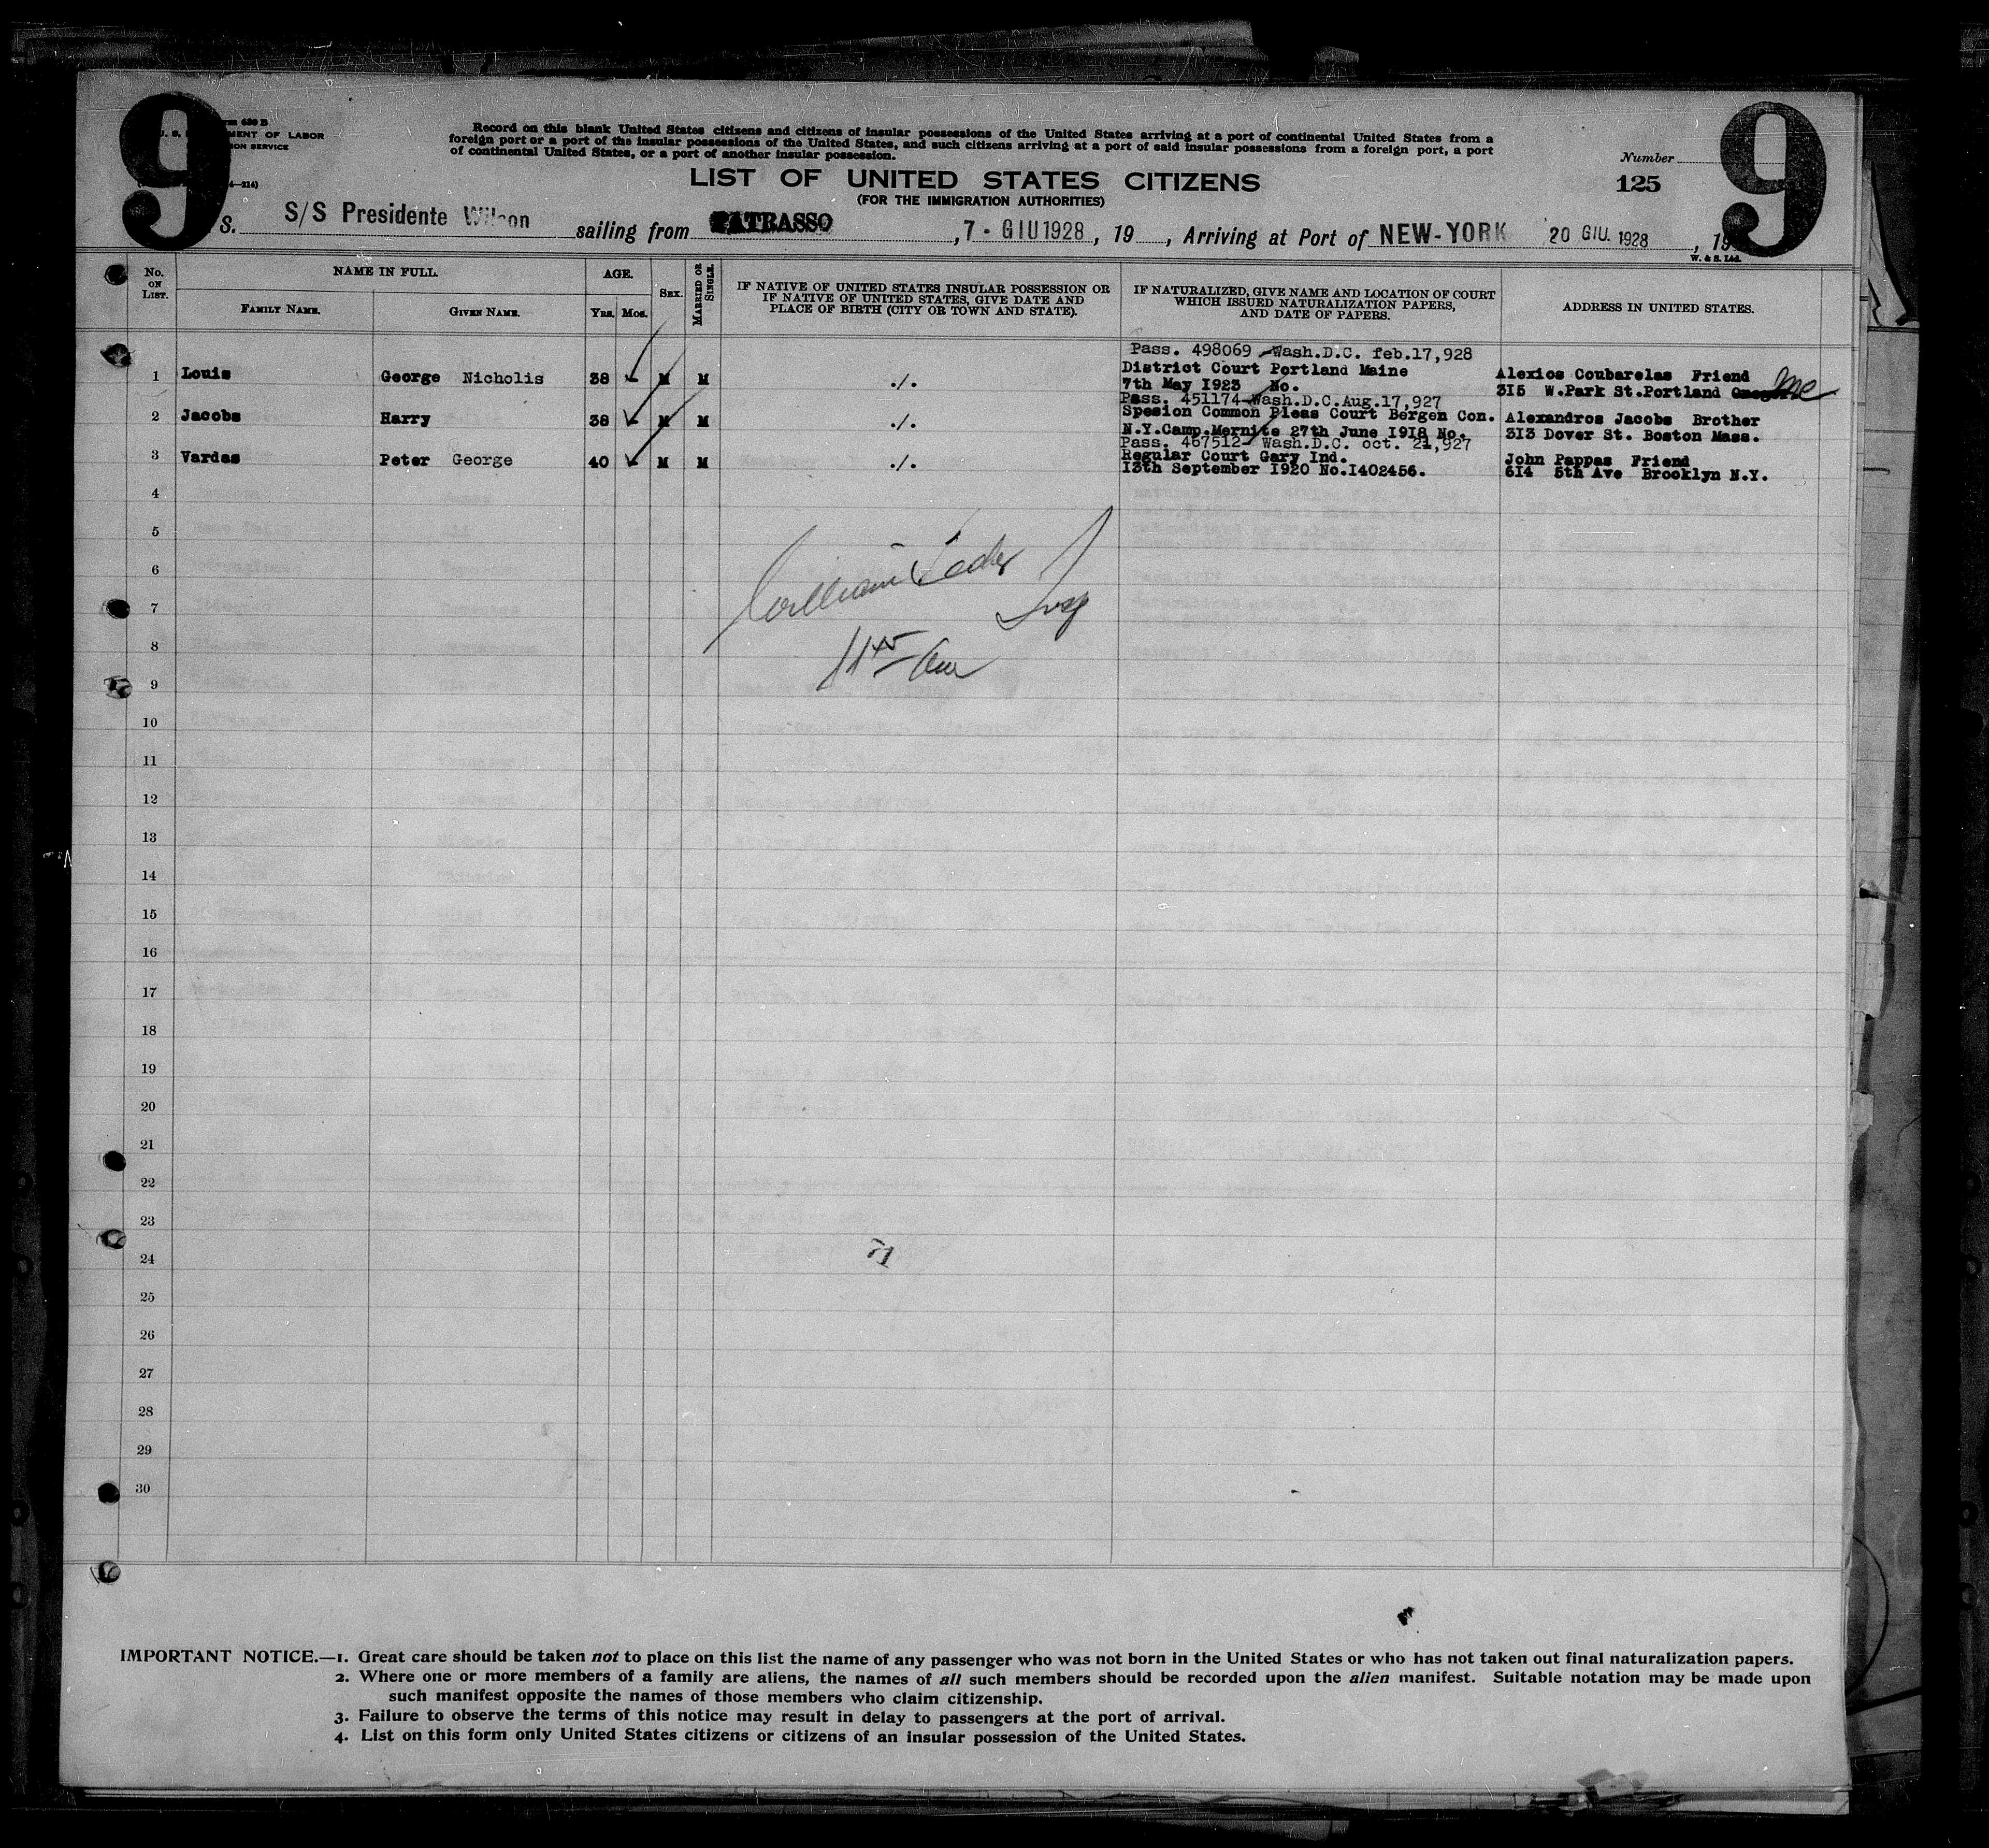 9
9
rm 630 B
U. S. MENT OF LABOR
ON SERVICE
4—214)
Record on this blank United States citizens and citizens of insular possessions of the United States arriving at a port of continental United States from a
foreign port or a port of the insular possessions of the United States, and such citizens arriving at a port of said insular possessions from a foreign port, a port
of continental United States, or a port of another insular possession.
Number
125
LIST OF UNITED STATES CITIZENS
(FOR THE IMMIGRATION AUTHORITIES)
S. S/S Presidente Wilson sailing from PATRASSO , 7 - GIU 1928 , 19 , Arriving at Port of NEW-YORK 20 GIU. 1928 , 19
W. & S. Ltd.
No. ON LIST.
NAME IN FULL.
FAMILY NAME.
GIVEN NAME.
AGE.
YRS.
MOS.
SEX.
MARRIED OR SINGLE.
IF NATIVE OF UNITED STATES INSULAR POSSESSION OR
IF NATIVE OF UNITED STATES, GIVE DATE AND
PLACE OF BIRTH (CITY OR TOWN AND STATE).
IF NATURALIZED, GIVE NAME AND LOCATION OF COURT
WHICH ISSUED NATURALIZATION PAPERS,
AND DATE OF PAPERS.
ADDRESS IN UNITED STATES.
Pass. 498069 Wash.D.C. feb.17,928
1 Louis George Nicholis 38 M M ./. District Court Portland Maine Alexios Coubarelas Friend
7th May 1923 No. 315 W.Park St.Portland Me
Pass. 451174 Wash.D.C.Aug.17,927
2 Jacobs Harry 38 M M ./. Spesion Common Pleas Court Bergen Con. Alexandros Jacobs Brother
N.Y.Camp.Mernite 27th June 1918 No. 313 Dover St. Boston Mass.
Pass. 467512 Wash.D.C. oct. 21,927
3 Vardas Peter George 40 M M ./. Regular Court Gary Ind. John Pappas Friend
13th September 1920 No.1402456. 614 5th Ave Brooklyn N.Y.
4
5
6
William
7
Insp
8
9
10
11
12
13
14
15
16
17
18
19
20
21
22
23
24
71
25
26
27
28
29
30
IMPORTANT NOTICE.—1. Great care should be taken not to place on this list the name of any passenger who was not born in the United States or who has not taken out final naturalization papers.
2. Where one or more members of a family are aliens, the names of all such members should be recorded upon the alien manifest. Suitable notation may be made upon
such manifest opposite the names of those members who claim citizenship.
3. Failure to observe the terms of this notice may result in delay to passengers at the port of arrival.
4. List on this form only United States citizens or citizens of an insular possession of the United States.